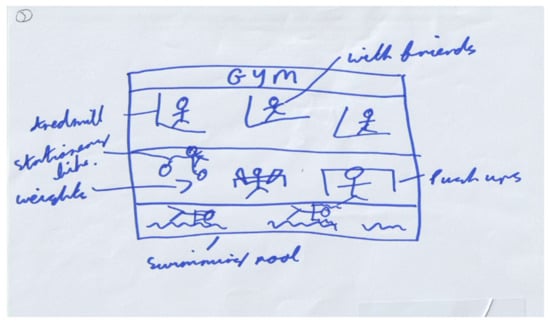 5
with friends
GYM
tredmill
stationary
bike.
weights
Push ups
swimming pool